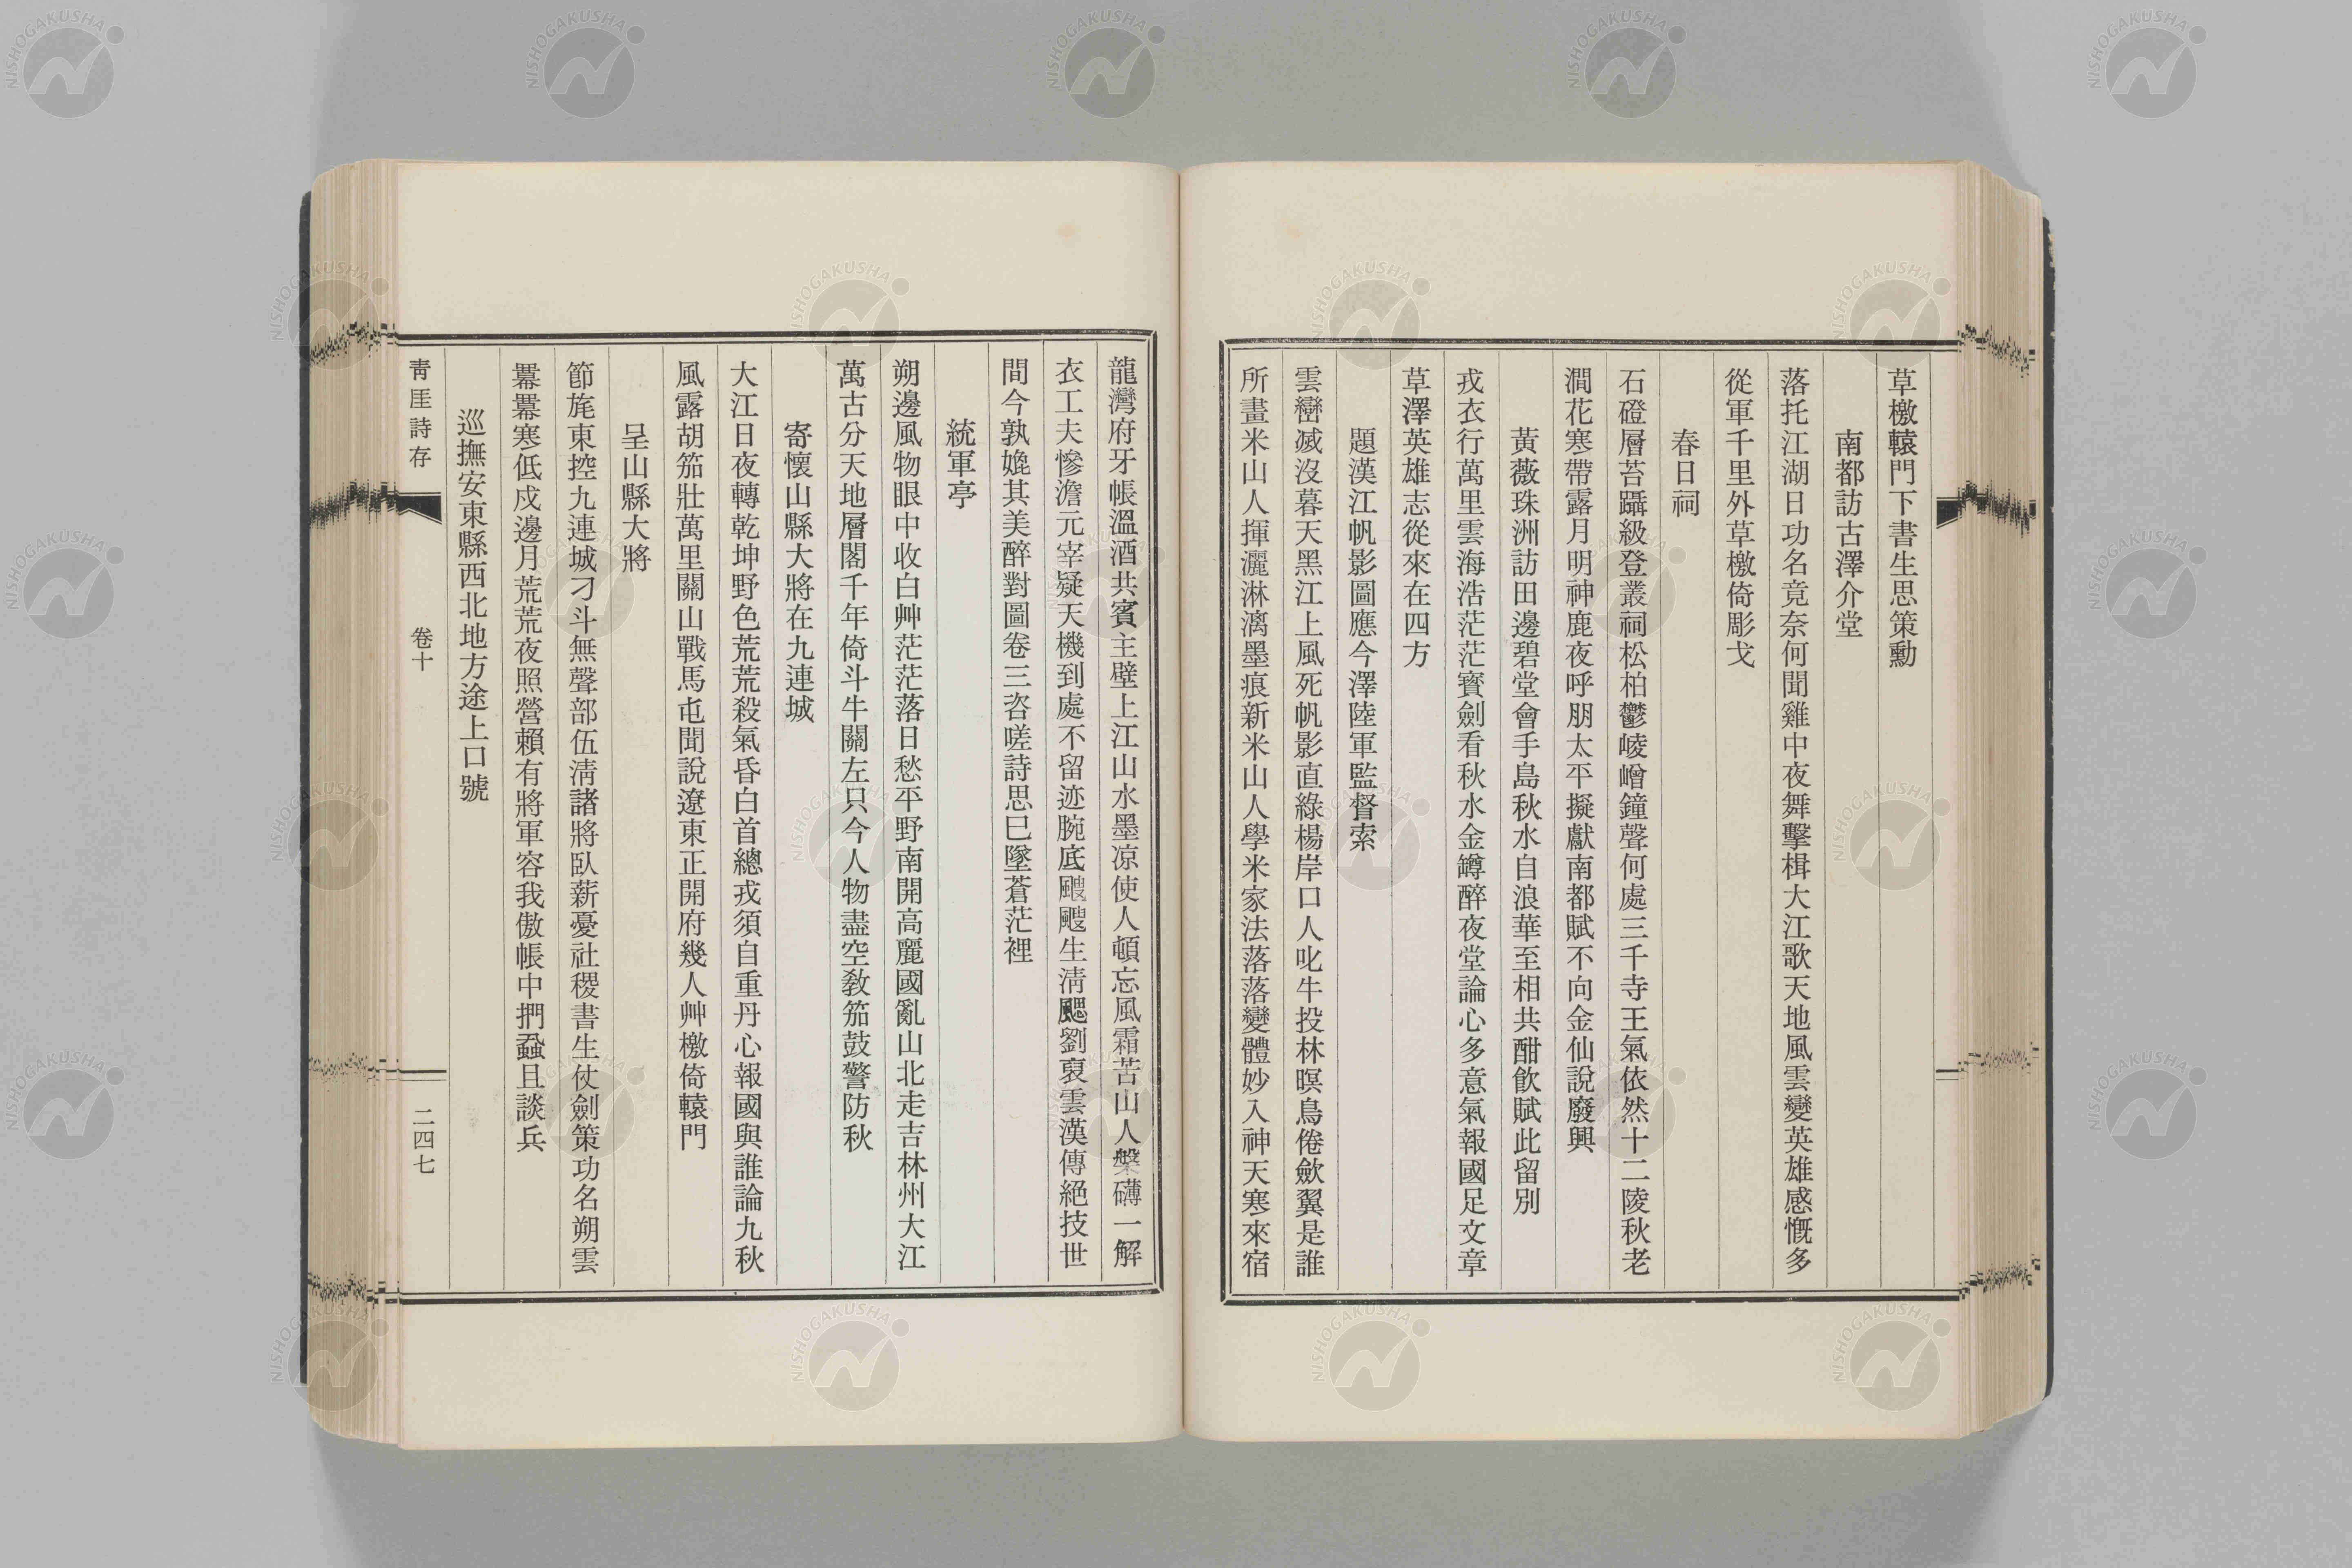 草檄轅門下書生思策勳
南都訪古澤介堂
落托江湖日功名竟奈何聞雞中夜舞擊楫大江歌天地風雲變英雄感慨多
從軍千里外草檄倚彫戈
春日祠
石磴層苔躡級登叢祠松柏鬱崚嶒鐘聲何處三千寺王氣依然十二陵秋老
澗花寒帶露月明神鹿夜呼朋太平擬獻南都賦不向金仙說廢興
黃薇珠洲訪田邊碧堂會手島秋水自浪華至相共酣飮賦此留別
戎衣行萬里雲海浩茫茫寳劍看秋水金罇醉夜堂論心多意氣報國足文章
草澤英雄志從來在四方
題漢江帆影圖應今澤陸軍監督索
雲巒滅沒暮天黑江上風死帆影直綠楊岸口人叱牛投林暝鳥倦歛翼是誰
所畫米山人揮灑淋漓墨痕新米山人學米家法落落變體妙入神天寒來宿
龍灣府牙帳溫酒共賓主壁上江山水墨凉使人頓忘風霜苦山人槃礴一解
衣工夫慘澹元宰疑天機到處不留迹腕底颼颼生淸颸劉裒雲漢傳絕技世
間今孰媲其美醉對圖卷三咨嗟詩思已墜蒼茫裡
統軍亭
朔邊風物眼中收白艸茫茫落日愁平野南開高麗國亂山北走吉林州大江
萬古分天地層閣千年倚斗牛關左只今人物盡空敎笳鼓警防秋
寄懷山縣大將在九連城
大江日夜轉乾坤野色荒荒殺氣昏白首總戎須自重丹心報國與誰論九秋
風露胡笳壯萬里關山戰馬屯聞說遼東正開府幾人艸檄倚轅門
呈山縣大將
節旄東控九連城刁斗無聲部伍淸諸將臥薪憂社稷書生仗劍策功名朔雲
羃羃寒低戍邊月荒荒夜照營賴有將軍容我傲帳中捫蝨且談兵
巡撫安東縣西北地方途上口號
靑厓詩存
卷十
二四七
NISHOGAKUSHA